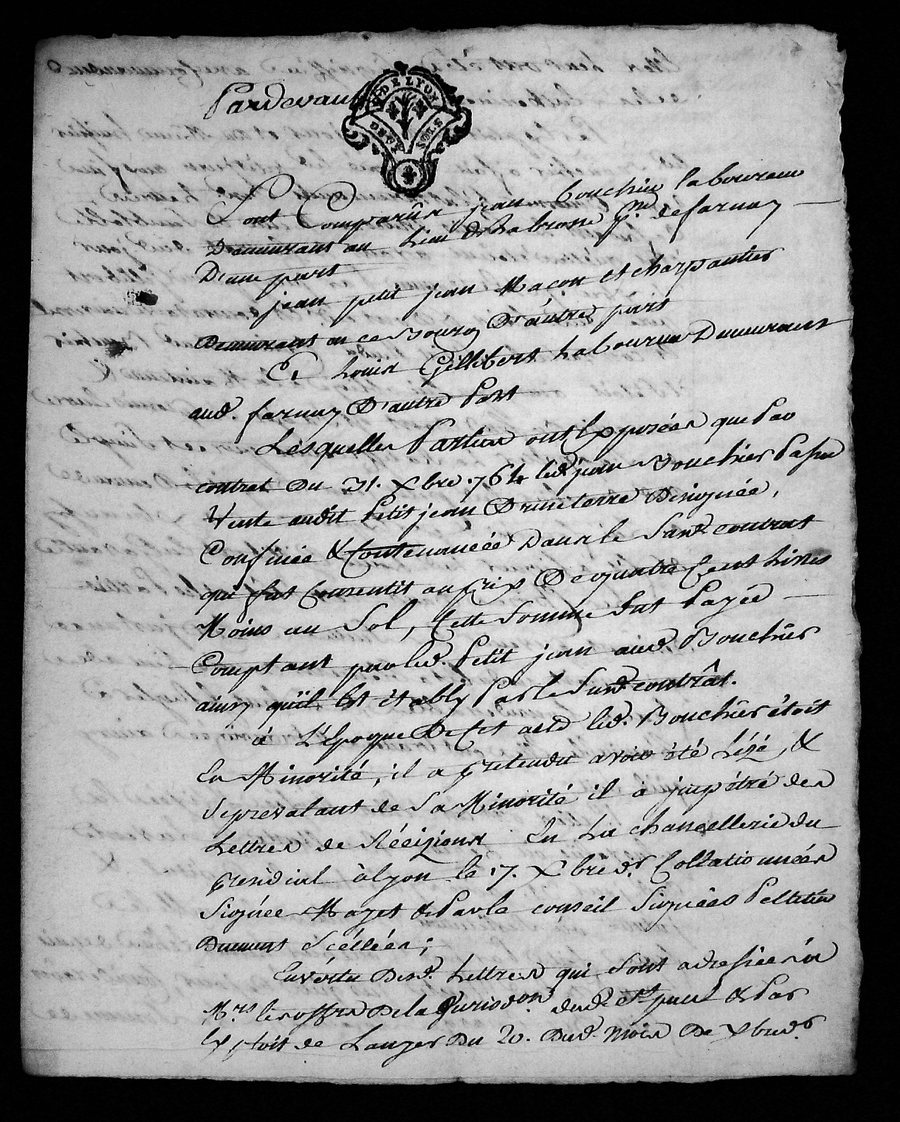 Pardevant
G. DE LYON
DEUX SOLS
Sont Comparus jean bouchier laboureur
Demeurant au Lieu de Labrosse psse de farnay
D'une part
jean petit jean Macon et charpantier
Demeurant en ce Bourg D'autre part
Et Louis Gillibert Laboureur Demeurant
aud. farnay D'autre Part
Lesquelles Parties ont Exposées que Par
contrat Du 31. Xbre. 1764 led. jean Bouchier Passa
Vente audit Petit jean D'une terre Désignée,
Confinée & Contenancée Dans le Susd. contrat
qui fut Consentit au Prix De quatre Cent Livres
Moins un Sol, Cette Somme fut Payée
Comptant par led. Petit jean aud. Bouchier
ainsy qu'il Est étably Par le Susd. contrât.
à L'Epoque De Cet acte led. Bouchier étoit
En Minorité, il a prétendu avoir été Lézé, &
Se prevalant de Sa Minorité il a impétré des
Lettres de Récizions En La chancellerie du
presidial à Lyon le 17. Xbre dr. Collationnées
Signée Mayet & Par le conseil Signées Pelletier
Dument Scéllées;
En vértu Desd. Lettres qui Sont adressées à
Mrs les offrs De la Jurisdon. dud. & Par
Exploit de Lauzer Du 20. Dud. mois De Xbre dr.